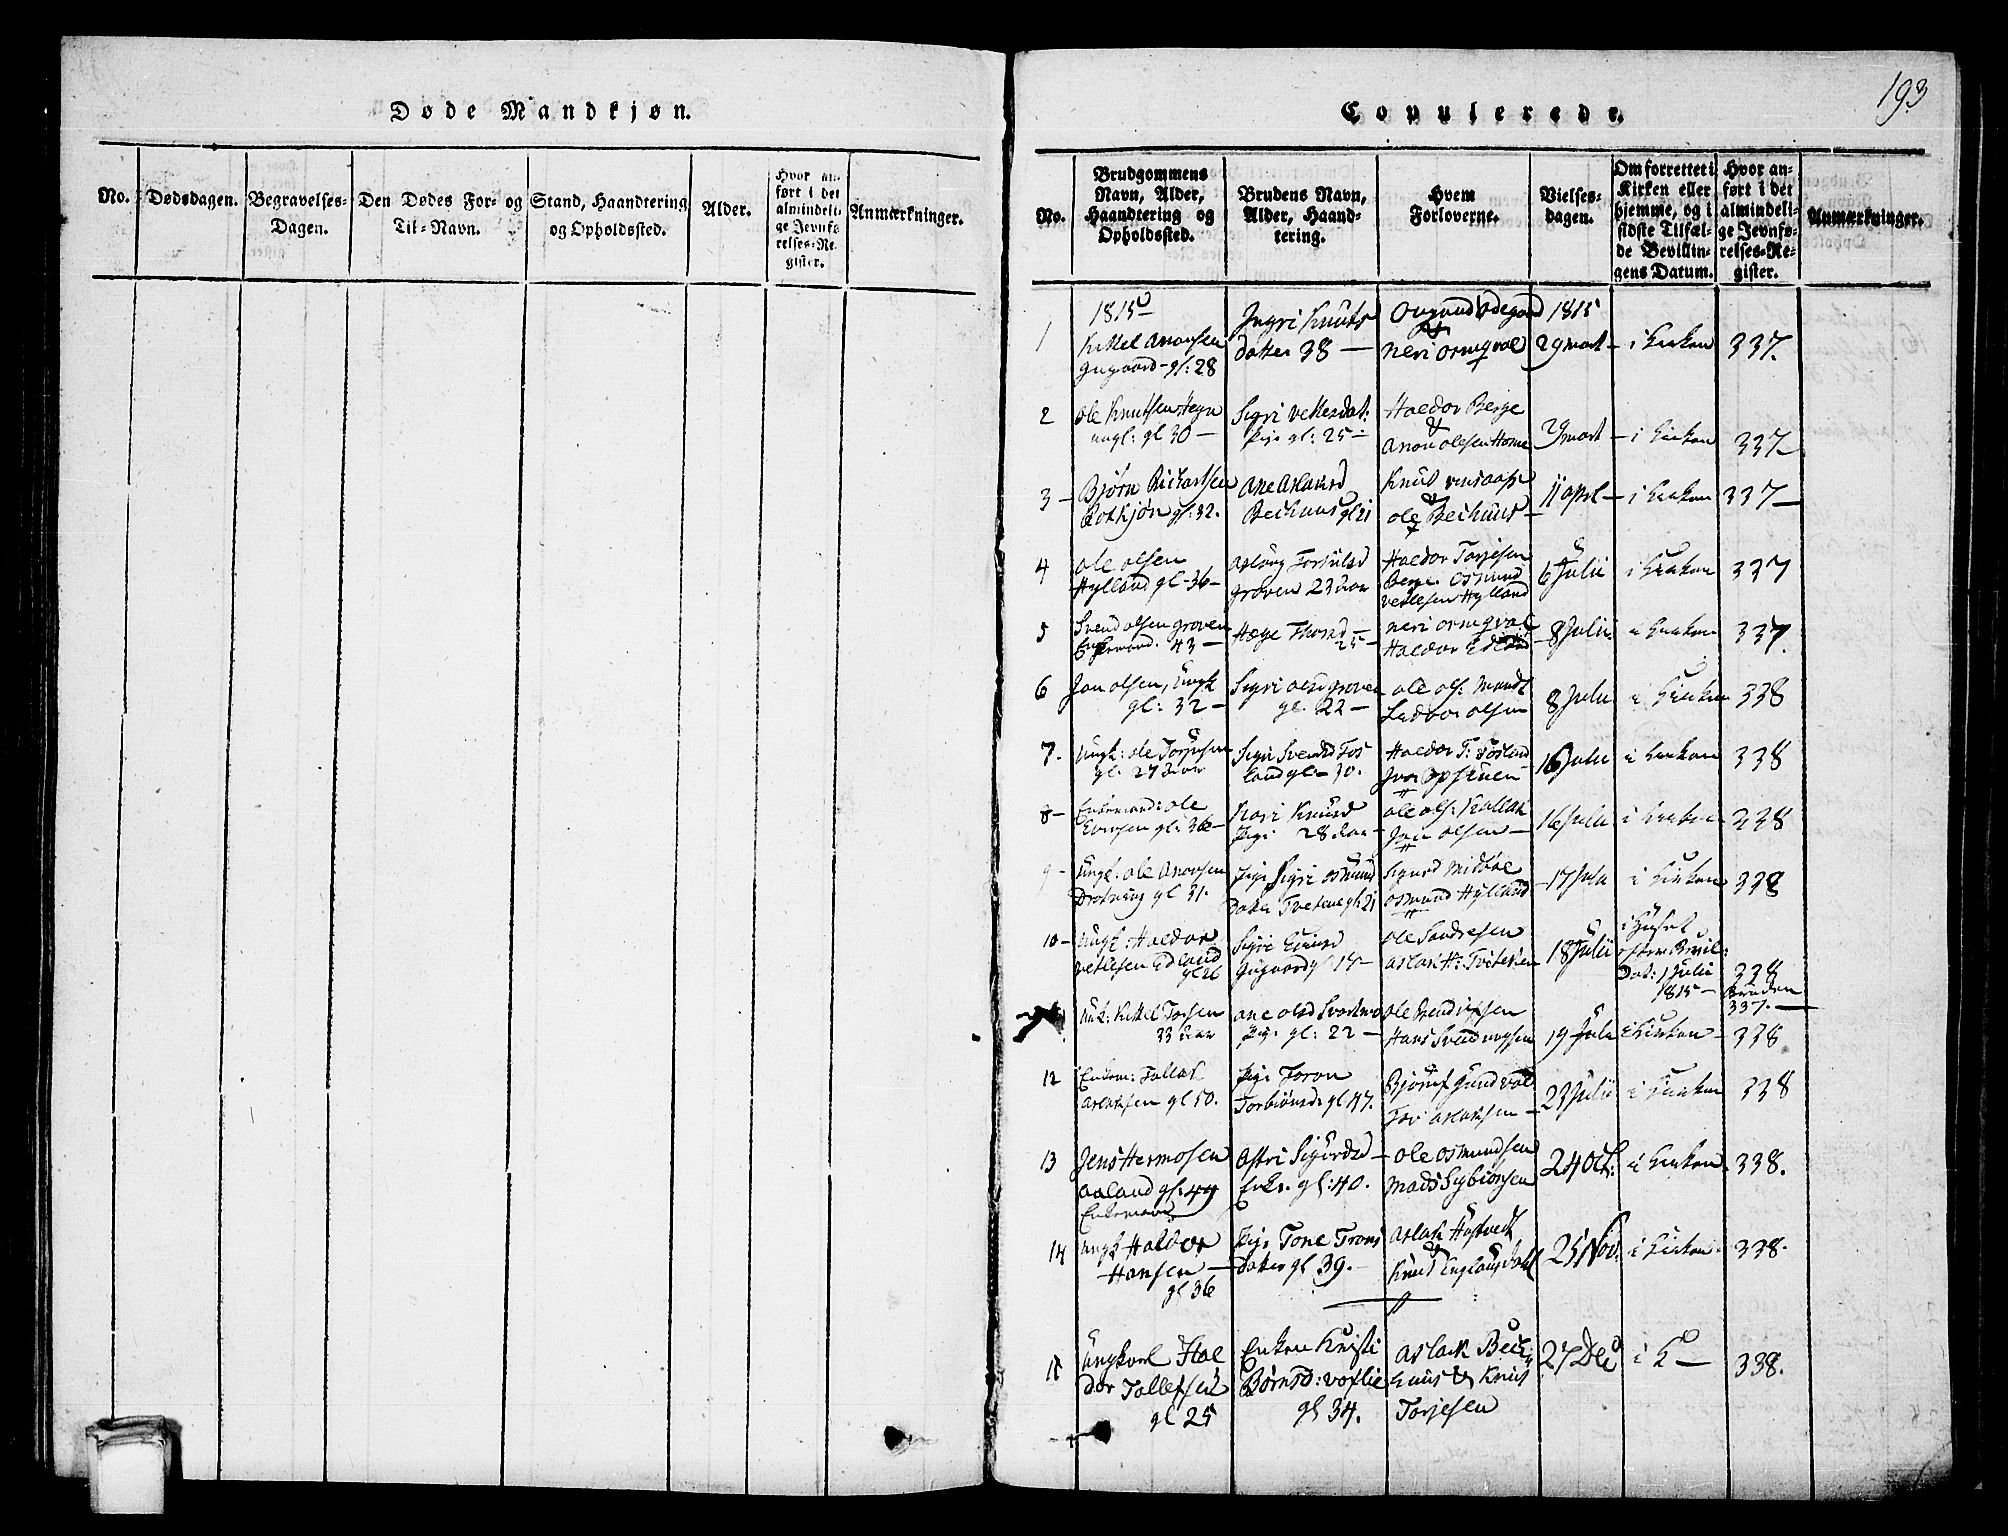 Døde Mandkjøn.
No.
Dødsdagen.
Begravelses-
Dagen.
Den Dødes For- og
Til-Navn.
Stand, Haandtering
og Opholdssted.
Alder.
Hvor an-
ført i det
almindeli-
ge Jevnfø-
relses-Re-
gister.
Anmærkninger.
193
Copulerede.
No.
Brudgommens
Navn, Alder,
Haandtering og
Opholdssted.
Brudens Navn,
Alder, Haand-
tering.
Hvem
Forloverne.
Vielses-
dagen.
Om forrettet i
Kirken eller
hjemme, og i
sidste Tilfæl-
de Bevillin-
gens Datum.
Hvor an-
ført i det
almindeli-
ge Jevnfø-
relses-Re-
gister.
Anmærkninger.
1
1815
Kittel Anonsen
gl: 28
Ingri Knuts
datter 38 —
Neri Ormqval
1815
29 Mart
i Kirken
337.
2
Ole Knutsen
ungk: gl 30 —
Sigri Vetlesdat:
Pige gl: 25 —
Haldor Berge
&
Anon Olesen Home
29 Mart
i Kirken
337
3 —
Bjørn Rickartsen
Botkjøn gl: 32.
Ane Aslaksd
Bechuus gl 21
Knud
&
Ole Bechuus
11 April
i Kirken
337
4
Ole Olsen
Hylland gl — 36 —
Aslaug Torkilsd
Groven 23 Aar
Haldor Torjesen
Berge Osmund
Vetlesen Hylland
6 Julii
i Kirken
337
5
Svend Olsen Groven
Enkemand. 43 —
Hæge Thorsd —
25 —
Neri Ormqval
Haldor Edland
8 Julii
i Kirken
337.
6
Jon Olsen, Ungk
gl: 32 —
Sigri Olsd Groven
gl. 22 —
Ole Ols: Mandt
Olsen
8 Julii
i Kirken
338
7.
Ungk: Ole Torjusen
gl. 27 Aar
Sigri Svendsd Fos
land gl — 30.
Haldor T: Fosland
16 Julii
i Kirken
338
8 —
Enkemand: Ole
Evensen gl: 36 —
Kari Knudsd
Pige 28 Aar —
Ole Ols:
Jon Olsen —
16 Julii
i Kirken
338
9 —
Ungk: Ole Anonsen
Drotning gl 31.
Pige Sigri Osmund
Datter Tvetene gl: 21
Sigurd Midbøe
Osmund Hylland
17 Julii
i Kirken
338
10 —
Ungk: Haldor
Vetlesen Edland
gl 26
Sigri
Ole Sondresen
Aslak H: Tviteken
18 Julii
i Huset
efter Bevil:
Dat: 1 Julii
1815 —
338
Bruden
337. —
Ungk: Kittel Torsen
33 Aar
Ane Olsd
Pige gl: 22 —
Ole
Hans Svenungsen
19 Julii
i Kirken
338
12
Enkem: Tallak
Aslaksen gl 50.
Pige Toron
Torbiønsd: gl 47.
Gundval
Tor Aslaksen —
23 Julii
i Kirken
338
13
Jens Hermosen
Aaland gl: 49
Enkemand
Astri Sigurdsd —
Enke. gl: 40.
Ole Osmundsen
Mads Sybiørsen
24 Oct:
i Kirken
338.
14
Ungk Haldor
Hansen —
gl 36
Pige Tone Trons
Datter gl 39. —
Aslak
&
Knud
25 Nov:
i Kirken
338.
15
Ungkarl Hal
dor Tallefsen
gl 25
Enken Kristi
Børnsd:
gl 34.
Aslak Bech
huus & Knud
Torjesen
27 Dec
i K —
338.